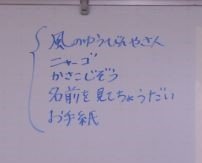 風のゆうびんやさん
ニャーゴ
かさこじぞう
名前を見てちょうだい
お手紙